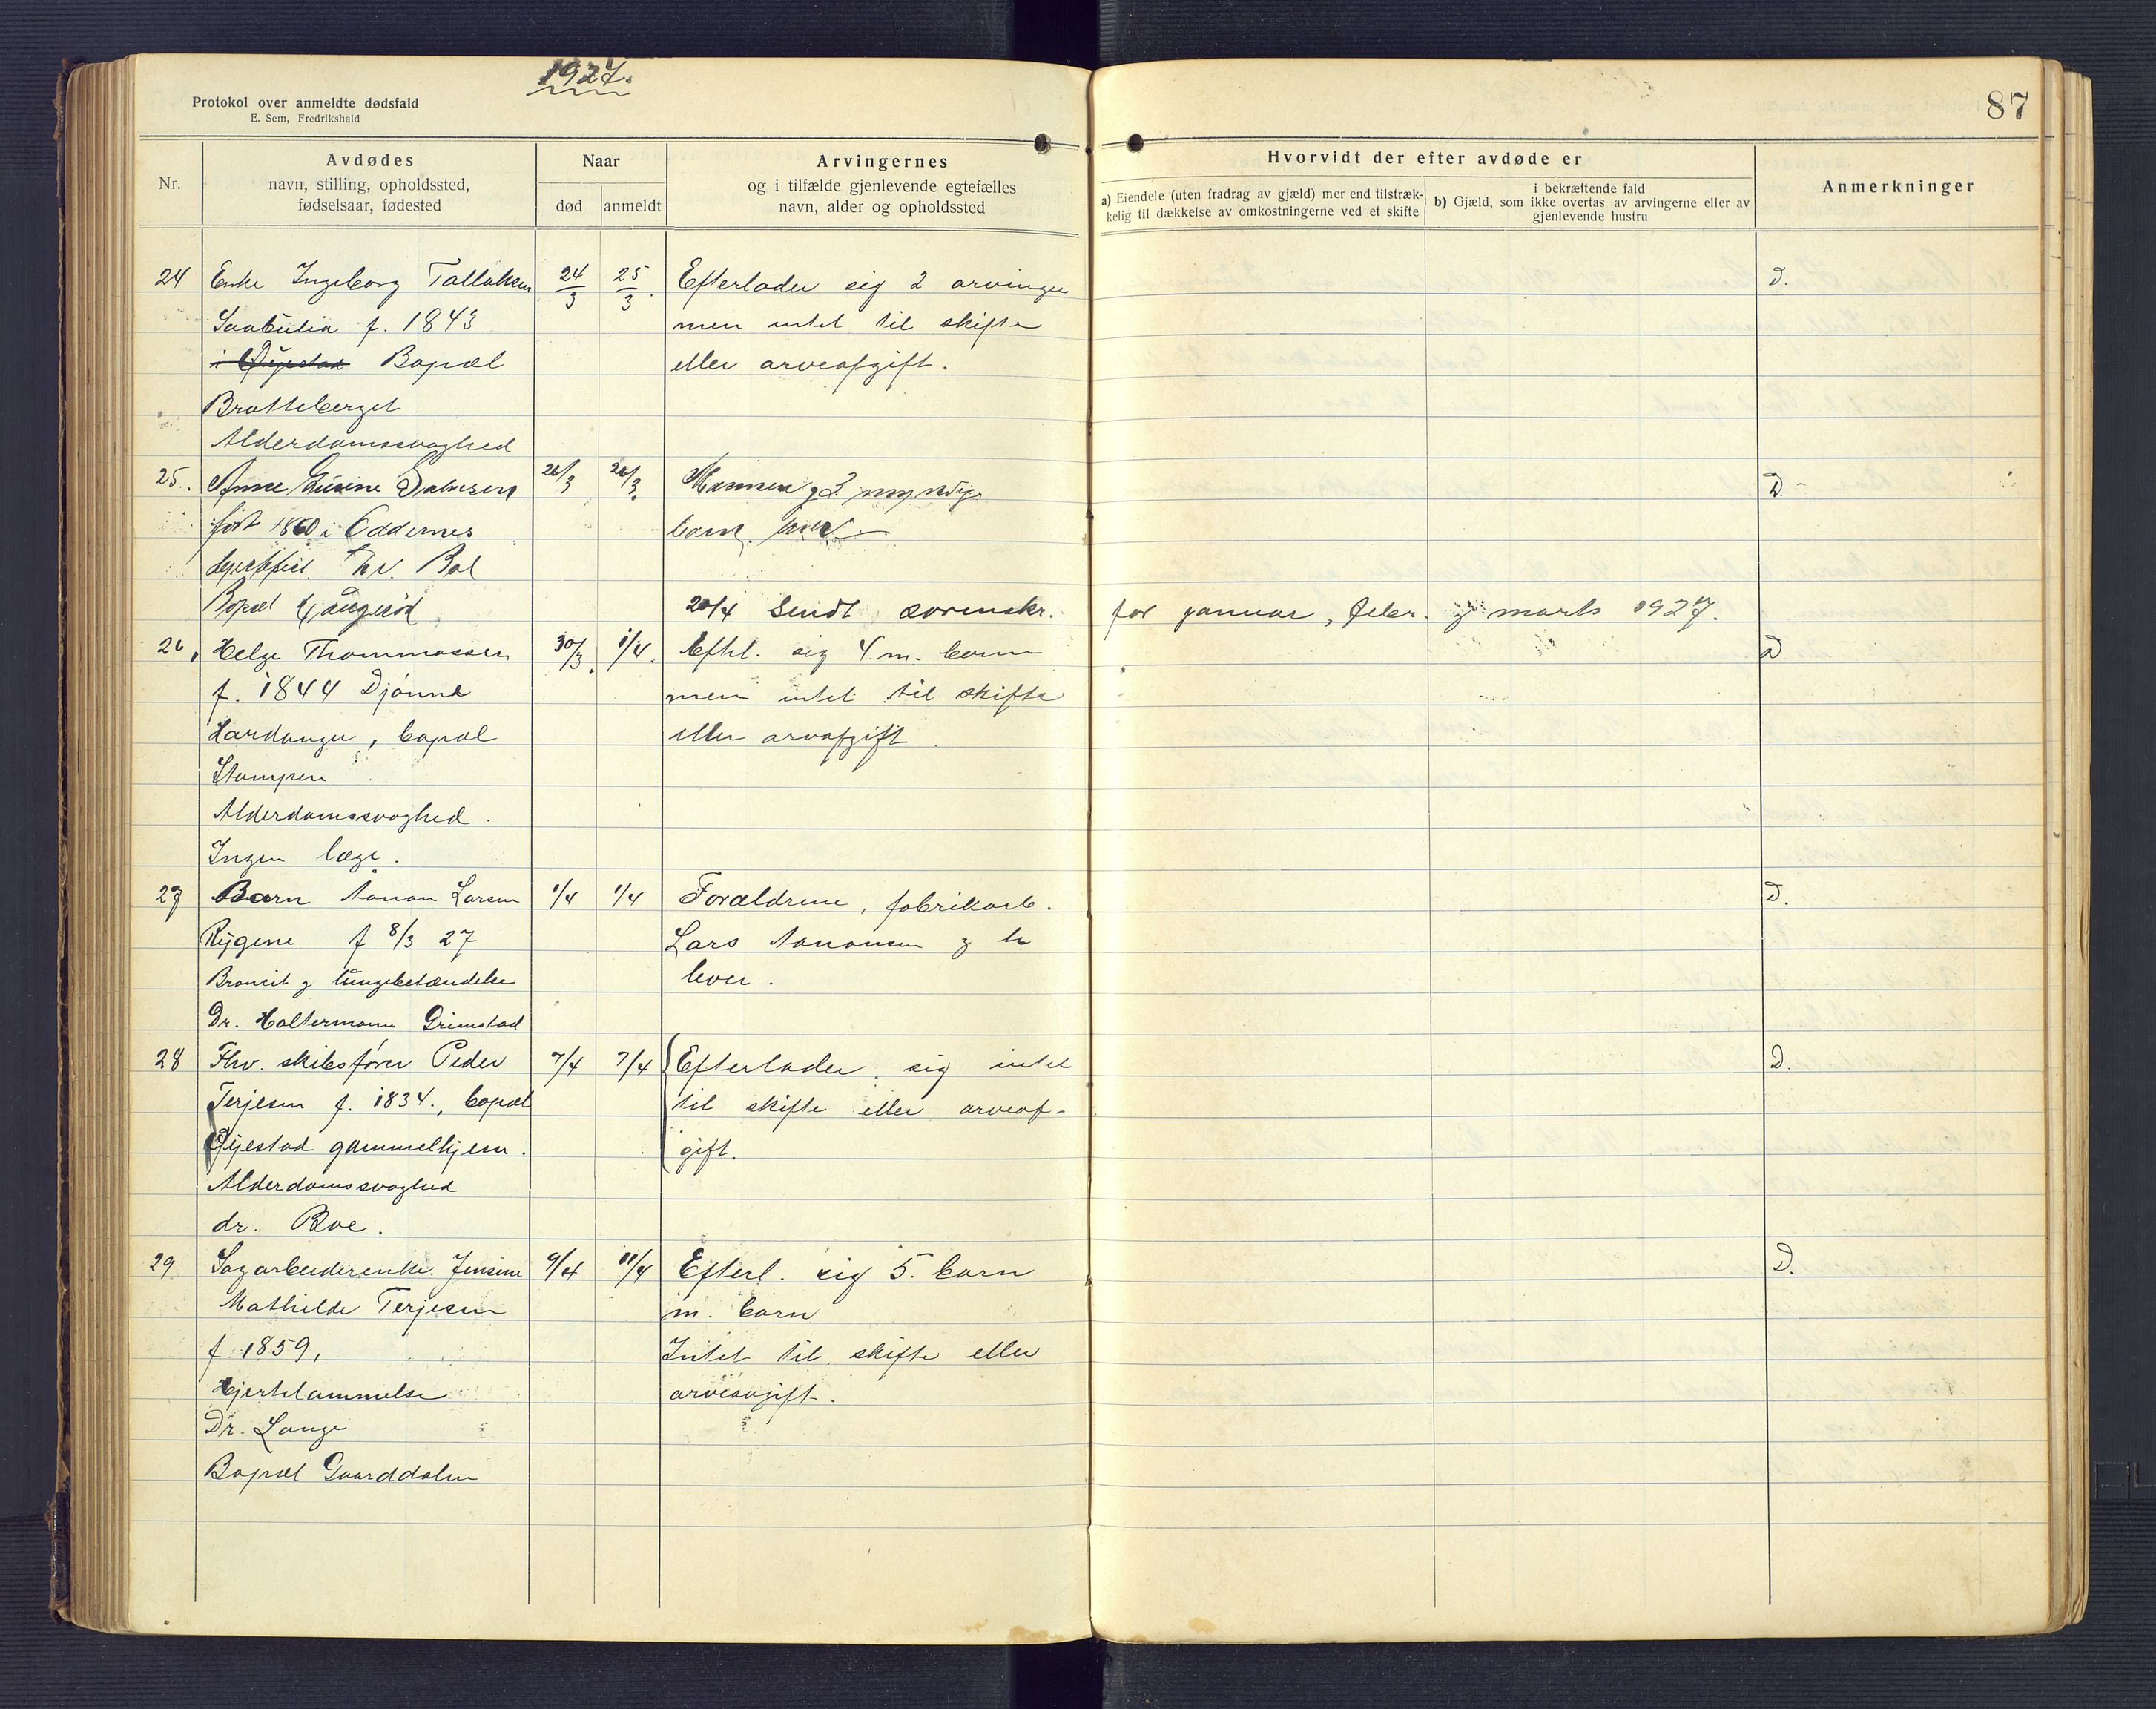 1927.
87
Protokol over anmeldte dødsfald
E. Sem, Fredrikshald
Nr.
Avdødes
navn, stilling, opholdssted,
fødselsaar, fødested
Naar
død
anmeldt
Arvingernes
og i tilfælde gjenlevende egtefælles
navn, alder og opholdssted
Hvorvidt der efter avdøde er
a) Eiendele (uten fradrag av gjæld) mer end tilstræk-
kelig til dækkelse av omkostningerne ved et skifte
i bekræftende fald
b) Gjæld, som ikke overtas av arvingerne eller av
gjenlevende hustru
Anmerkninger
24 Enke Ingeborg Tallaksen 24/3 25/3. Efterlader sig 2 arvinger D.
f. 1843 men intet til skifte
i Øjestad Bopæl eller arveafgift.
Bratteberget
Alderdomssvaghed
25. Anne 26/3 26/3. Manden og 3 myndige D.-
født 1860 i Oddernes barn.
Bopæl 20/4 Sendt sorenskr. for januar, febr. og marts 1927.
26. Helge Thommassen 30/3. 1/4. Efterl. sig 4. m. barn D
f. 1844 Djønne men intet til skifte
Hardanger, bopæl eller arvafgift.
Stampen
Alderdomssvaghed.
Ingen læge.
27 Barn Aanon Larsen 1/4 1/4 Forældrene, fabrikarb. D.
Rygene f 8/3 27 Lars Aanonsen og h
Broncit og lungebetændelse lever.
Dr. Holtermann Grimstad
28 Fhv. skibsfører Peder 7/4 7/4 Efterlader sig intet D.
Terjesen f. 1834., bopæl til skifte eller arveaf-
Øjestad gammelhjem. gift.
Alderdomssvaghed
dr. Boe.
29 Sagarbeiderenke Jensine 9/4 11/4 Efterl. sig 5. barn D.
Mathilde Terjesen m. barn
f. 1859, Intet til skifte eller
Hjertelammelse arveavgift.
Dr. Lange
Bopæl Gaarddalen